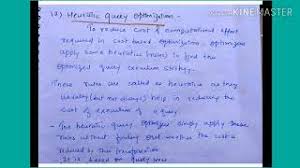 Made with KINEMASTER
12) Heuristic Query Optimization -
To reduce cost & computational effort
required in cost based optimization, optimizer
apply some heuristic (rules) to find the
optimized query execution strategy.
These rules are called as heuristic as they
usually (but not always) help in reducing the
cost of execution of a query
- The heuristic query optimizer simply apply these
rules without finding out whether the cost is
reduced by this transformation
- It is based on query tree